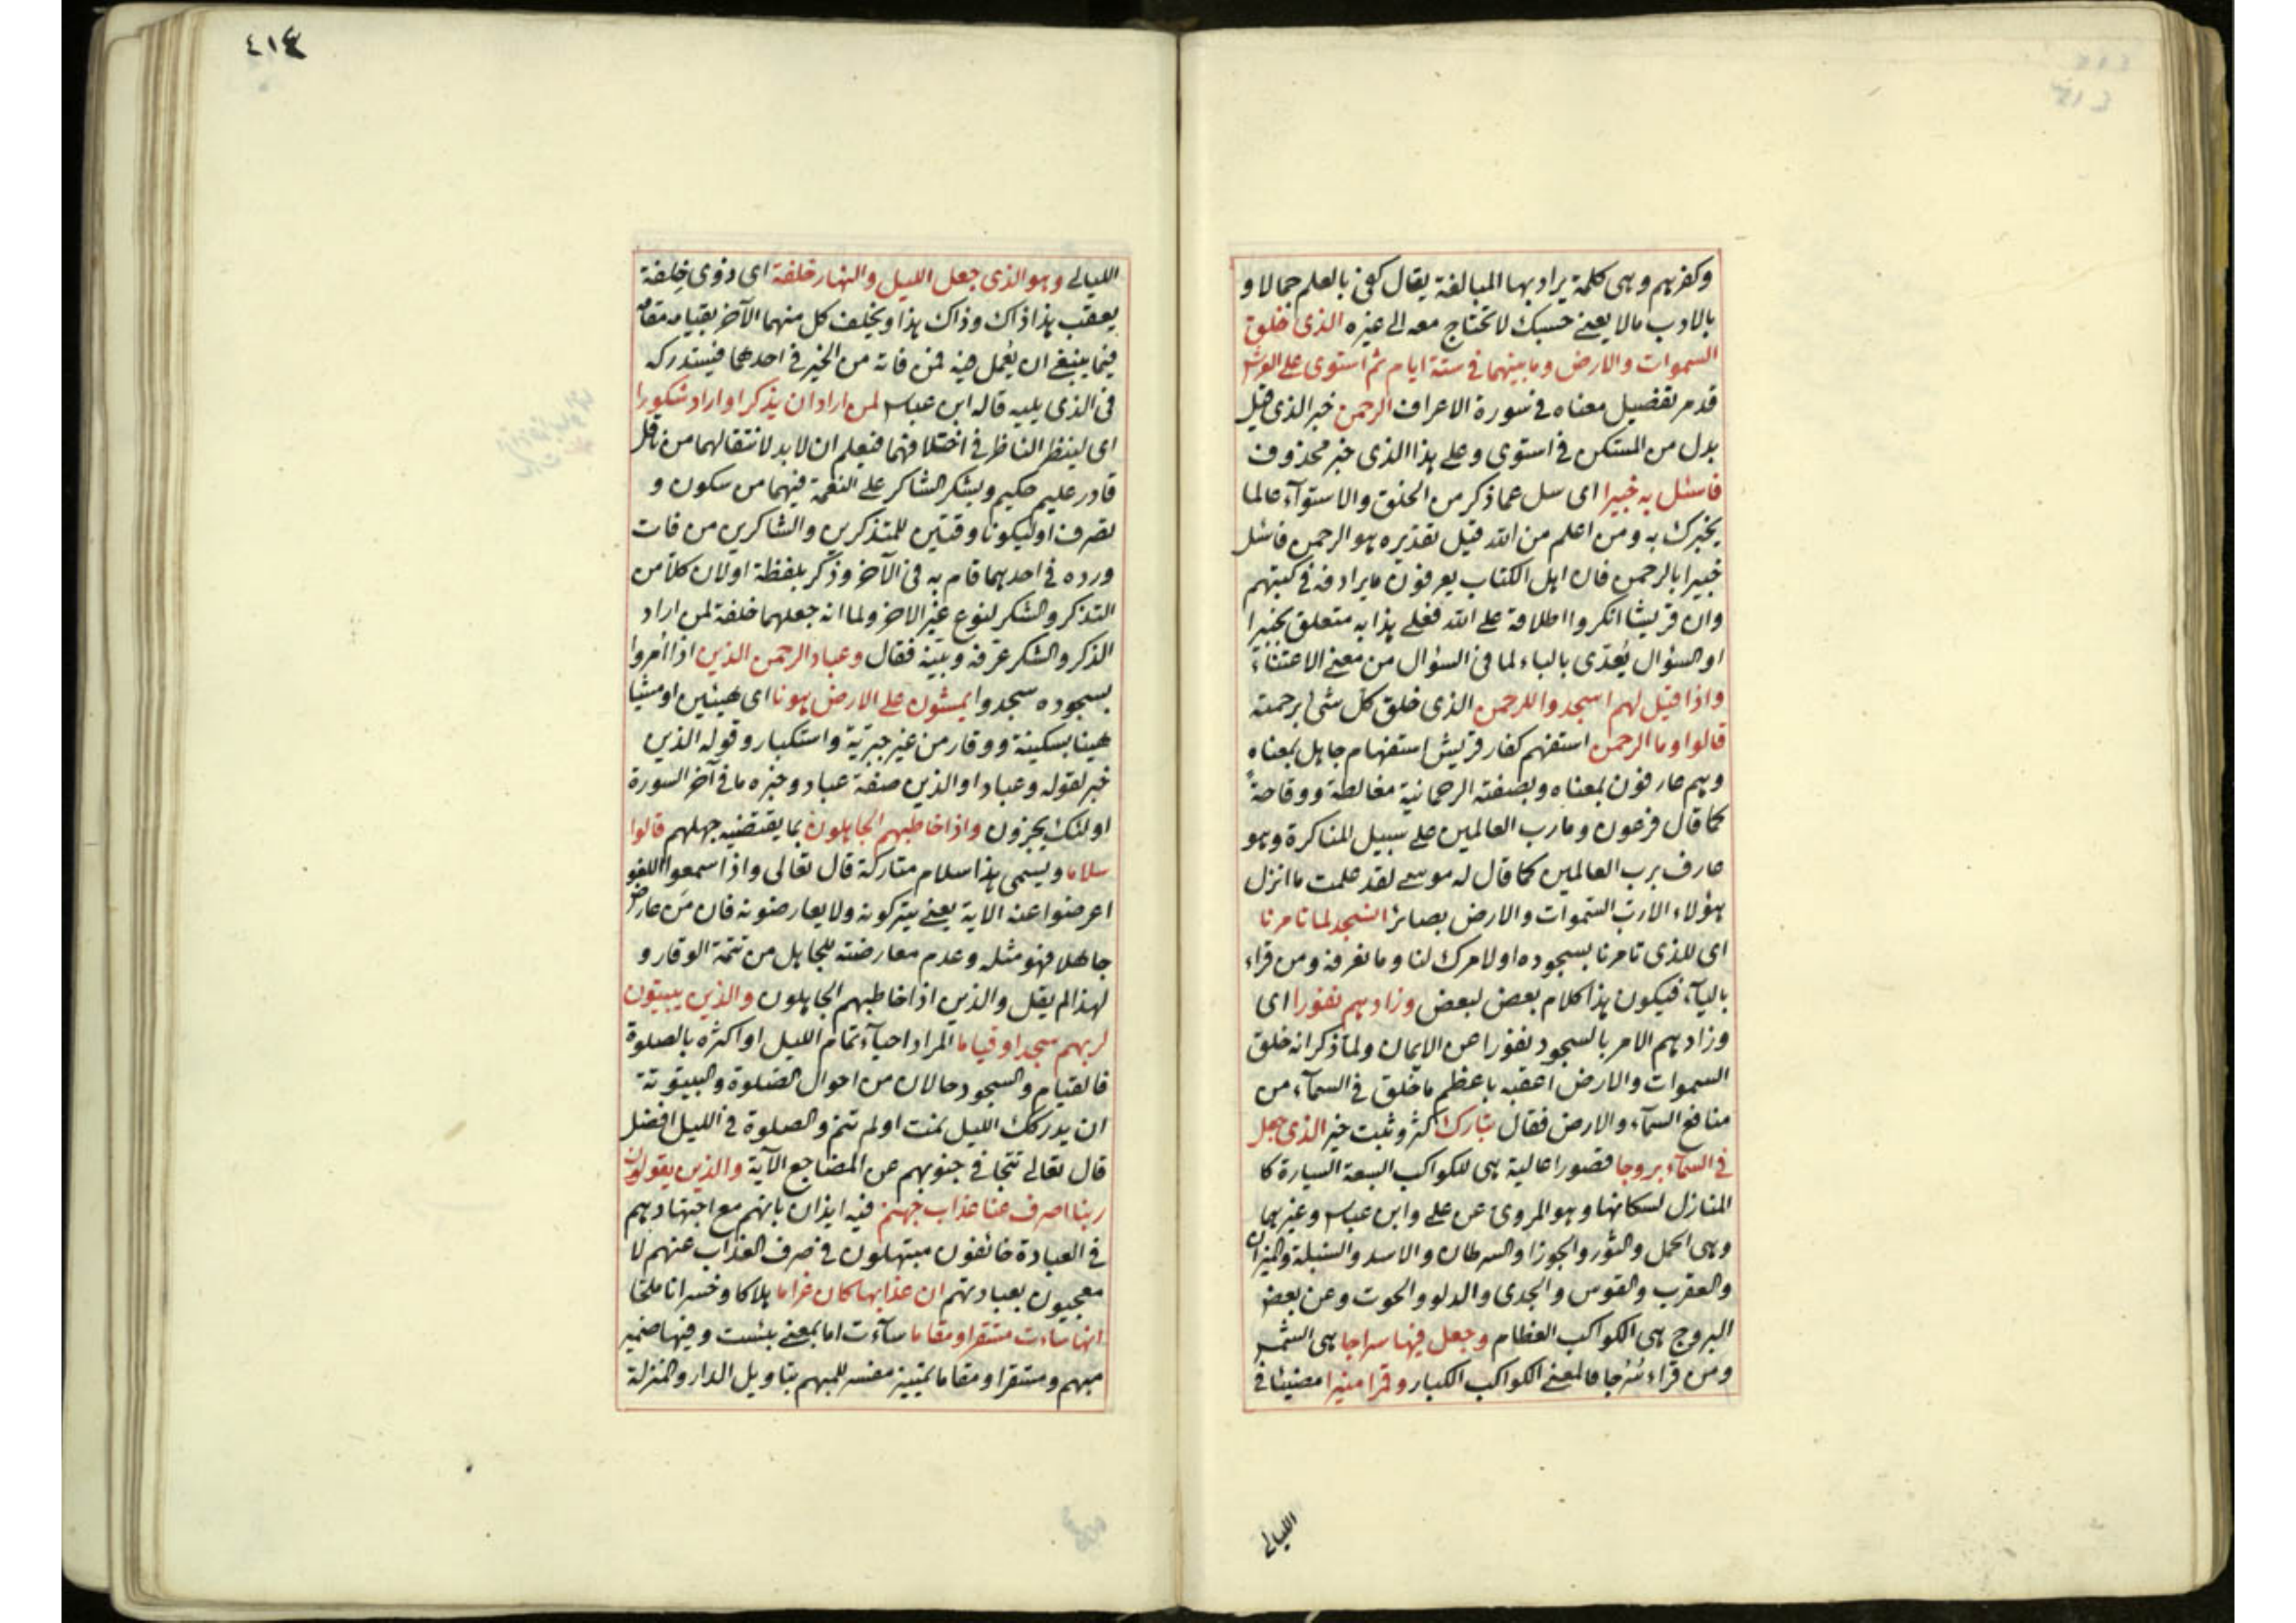 وكفرهم وهى كلمة يراد بها المبالغة يقال كفى بالعلم جمالا و
بالادب مالا يعنى حسبك لا تحتاج معه الى غيره الذى خلق
السموات والارض وما بينهما فى ستة ايام ثم استوى على العرش
قدم تفضيل معناه فى سورة الاعراف الرحمن خبر الذى قيل
بدل من المستكن فى استوى وعلى هذا الذى خبر محذوف
فاسئل به خبيرا اى سل عما ذكر من الخلق والاستوآء عالما
يخبرك به ومن اعلم من الله قيل تقديره هو الرحمن فاسئل
خبيرا بالرحمن فان اهل الكتاب يعرفون ما يرادفه فى كتبهم
وان قريشا انكروا اطلاقه على الله فعلى هذا به متعلق بخبيرا
او السؤال يُعدّى بالباء لما فى السؤال من معنى الاعتناء
واذا قيل لهم اسجدوا للرحمن الذى خلق كل شئ برحمته
قالوا وما الرحمن استفهم كفار قريش استفهام جاهل بمعناه
وهم عارفون بمعناه وبصفته الرحمانية مغالطة ووقاحةً
كما قال فرعون وما رب العالمين على سبيل المناكرة وهو
عارف برب العالمين كما قال له موسى لقد علمت ما انزل
هؤلاء الا رب السموات والارض بصائر انسجد لما تامرنا
اى للذى تامرنا بسجوده او لامرك لنا وما نعرفه ومن قراء
باليآء فيكون هذا كلام بعض لبعض وزادهم نفورا اى
وزادهم الامر بالسجود نفورا عن الايمان ولما ذكر انه خلق
السموات والارض اعقبه باعظم ما خلق فى السمآء من
منافع السمآء والارض فقال تبارك كثر وثبت خير الذى جعل
فى السمآء بروجا قصورا عالية هى للكواكب السبعة السيارة كا
المنازل لسكانها وهو المروى عن على وابن عباس وغيرهما
وهى الحمل والثور والجوزا والسرطان والاسد والسنبلة والميزان
والعقرب والقوس والجدى والدلو والحوت وعن بعض
البروج هى الكواكب العظام وجعل فيها سراجا هى الشمس
ومن قراء سُرُجا فالمعنى الكواكب الكبار وقمرا منيرا مضيئا فى
الليالى
٤١٤
الليالى وهو الذى جعل الليل والنهار خلفة اى ذوى خِلفة
يعقب هذا ذاك وذاك هذا ويخلف كل منهما الآخر بقيامه مقامه
فيما ينبغى ان يُعمل فيه فمن فاته من الخير فى احدهما فيستدركه
فى الذى يليه قاله ابن عباس لمن اراد ان يذكر او اراد شكورا
اى لينظر الناظر فى اختلافهما فيعلم ان لا بد لانتقالهما من ناقل
قادر عليم حكيم ويشكر الشاكر على النعمة فيهما من سكون و
تصرف او ليكونا وقتين للمتذكرين والشاكرين من فات
ورده فى احدهما قام به فى الآخر وذكر بلفظة او لان كلاً من
التذكر والشكر لنوع غير الاخر ولما انه جعلهما خلفة لمن اراد
الذكر والشكر عرّفه وبيّنه فقال وعباد الرحمن الذين اذا اُمروا
بسجوده سجدوا يمشون على الارض هونا اى هينين او مشيا
هينا بسكينة ووقار من غير جبرية واستكبار وقوله الذين
خبر لقوله وعباد او الذين صفة عباد وخبره ما فى آخر السورة
اولئك يجزون واذا خاطبهم الجاهلون بما يقتضيه جهلهم قالوا
سلاما ويسمى هذا سلام متاركة قال تعالى واذا سمعوا اللغو
اعرضوا عنه الاية يعنى يتركونه ولا يعارضونه فان مَن عارض
جاهلا فهو مثله وعدم معارضته للجاهل من تتمة الوقار و
لهذا لم يقل والذين اذا خاطبهم الجاهلون والذين يبيتون
لربهم سجدا وقياما المراد احيآء تمام الليل او اكثره بالصلوة
فالقيام والسجود حالان من احوال الصلوة والبيتوتة
ان يدركك الليل نمت او لم تنم والصلوة فى الليل افضل
قال تعالى تتجافى جنوبهم عن المضاجع الآية والذين يقولون
ربنا اصرف عنا عذاب جهنم فيه ايذان بانهم مع اجتهادهم
فى العبادة خائفون مبتهلون فى صرف العذاب عنهم لا
معجبون بعبادتهم ان عذابها كان غراما هلاكا وخسرانا ملحا
انها ساءت مستقرا ومقاما سآءت اما بمعنى بئست وفيها ضمير
مبهم ومستقرا ومقاما تمييز مفسر للمبهم بتاويل الدار والمنزلة